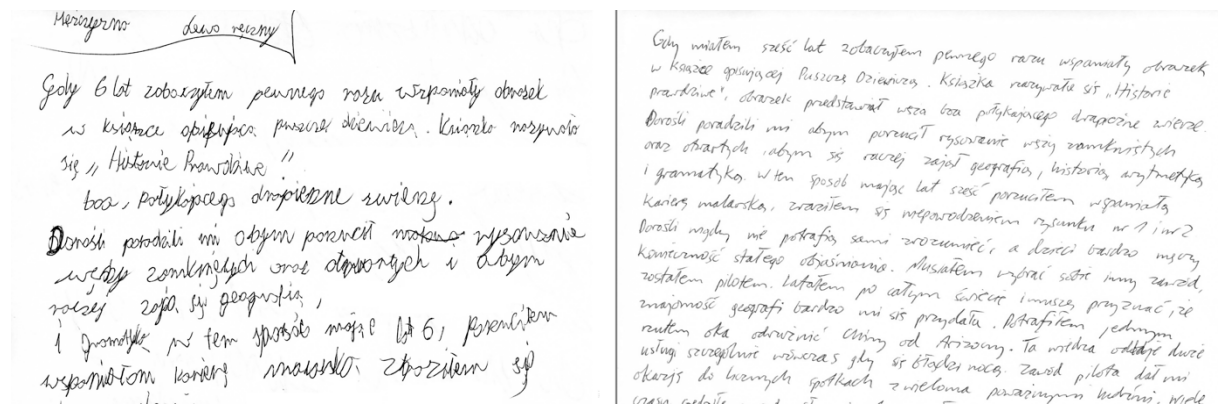 Mężczyzna lewo ręczny
Gdy 6 lat zobaczyłem pewnego razu wspaniały obrazek
w książce opisującą puszczę dziewiczą. Książka nazywała
się „Historie Prawdziwe"
boa, połykającego drapieżne zwierzę.
Dorośli poradzili mi abym porzucił rysowanie
węży zamkniętych oraz otwartych i abym
raczej zajął się geografią,
i gramatyką w ten sposób mając lat 6, porzuciłem
wspaniałom karierę malarską. zraziłem się
Gdy miałem sześć lat zobaczyłem pewnego razu wspaniały obrazek
w książce opisującej Puszczę Dziewiczą. Książka nazywała się „Historie
prawdziwe", obrazek przedstawiał węża boa połykającego drapieżne zwierzę.
Dorośli poradzili mi abym porzucił rysowanie węży zamkniętych
oraz otwartych i abym się raczej zajął geografią, historią, arytmetyką
i gramatyką. W ten sposób mając lat sześć porzuciłem wspaniałą
karierę malarską, zraziłem się niepowodzeniem rysunku nr 1 i nr 2
Dorośli nigdy nie potrafią sami zrozumieć, a dzieci bardzo męczy
konieczność stałego objaśniania. Musiałem wybrać sobie inny zawód,
zostałem pilotem. Latałem po całym świecie i muszę przyznać, że
znajomość geografi bardzo mi się przydała. Potrafiłem jednym
rzutem oka odróżnić Chiny od Arizony. Ta wiedza oddaje duże
usługi szczególnie wówczas gdy się błądzi nocą. Zawód pilota dał mi
okazję do licznych spotkach z wieloma poważnymi ludźmi. Wiele